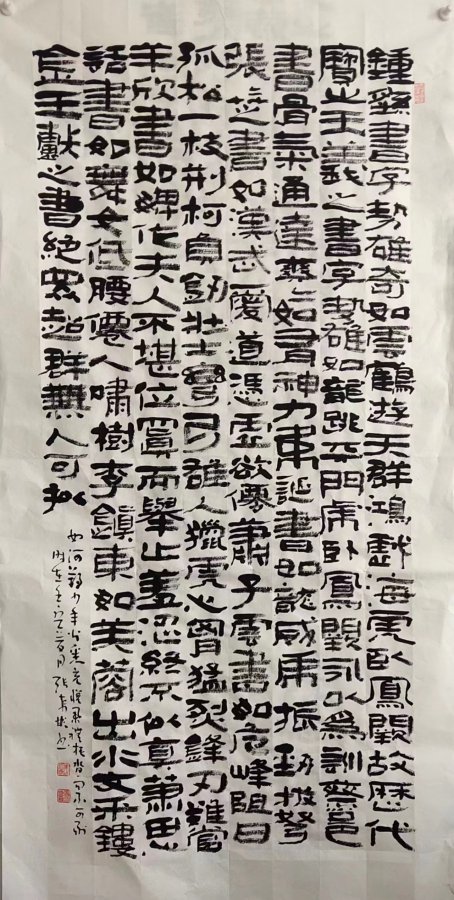 鍾繇書字勢雄奇如雲鶴遊天群鴻戲海虎臥鳳闕故歷代
寶之王羲之書字勢雄如龍跳天門虎臥鳳闕永以為訓蔡邕
書骨氣通達爽爽如有神力韋誕書如龍威虎振劍拔弩
張芝書如漢武愛道馮虛欲僊蕭子雲書如危峰阻日
孤松一枝荊柯負劍壯士彎弓雄人獵虎心胸猛烈鋒刃難當
羊欣書如婢作夫人不堪位置而舉止羞澀終不似真蕭思
話書如舞女低腰僊人嘯樹李鎮東如芙蓉出水文采鏤
金王獻之書絕眾超群無人可擬